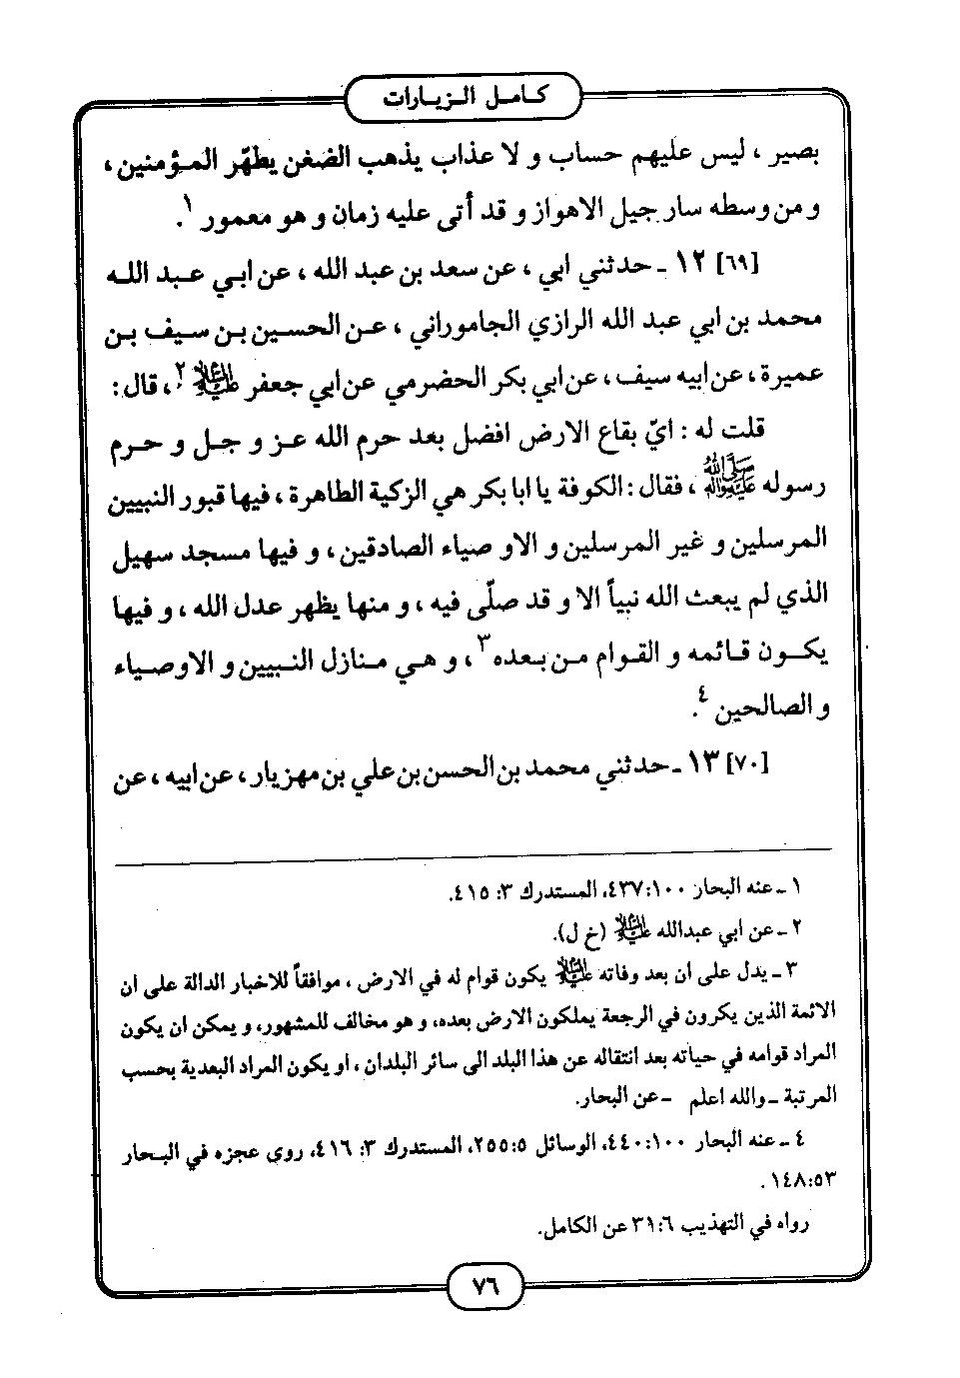 كامل الزيارات
بصير ، ليس عليهم حساب و لا عذاب يذهب الضغن يطهّر المؤمنين ،
و من وسطه سار جيل الاهواز و قد أتى عليه زمان و هو معمور ١.
[٦٩] ١٢ ـ حدثني ابي ، عن سعد بن عبد الله ، عن ابي عبد الله
محمد بن ابي عبد الله الرازي الجاموراني ، عن الحسين بن سيف بن
عميرة ، عن ابيه سيف ، عن ابي بكر الحضرمي عن ابي جعفر عليه السلام ٢ ، قال :
قلت له : ايّ بقاع الارض افضل بعد حرم الله عز و جل و حرم
رسوله صلى الله عليه وآله ، فقال : الكوفة يا ابا بكر هي الزكية الطاهرة ، فيها قبور النبيين
المرسلين و غير المرسلين و الاوصياء الصادقين ، و فيها مسجد سهيل
الذي لم يبعث الله نبياً الا و قد صلّى فيه ، و منها يظهر عدل الله ، و فيها
يكون قائمه و القوام من بعده ٣ ، و هي منازل النبيين و الاوصياء
و الصالحين ٤.
[٧٠] ١٣ ـ حدثني محمد بن الحسن بن علي بن مهزيار ، عن ابيه ، عن
١ ـ عنه البحار ١٠٠:٤٣٧، المستدرك ٣: ٤١٥.
٢ ـ عن ابي عبدالله عليه السلام (خ ل).
٣ ـ يدل على ان بعد وفاته عليه السلام يكون قوام له في الارض ، موافقاً للاخبار الدالة على ان
الائمة الذين يكرون في الرجعة يملكون الارض بعده، و هو مخالف للمشهور، و يمكن ان يكون
المراد قوامه في حياته بعد انتقاله عن هذا البلد الى سائر البلدان ، او يكون المراد البعدية بحسب
المرتبة ـ والله اعلم ـ عن البحار.
٤ ـ عنه البحار ١٠٠:٤٤٠، الوسائل ٥:٢٥٥، المستدرك ٣: ٤١٦، روي عجزه في البحار
٥٣:١٤٨ .
رواه في التهذيب ٦:٣١ عن الكامل.
٧٦